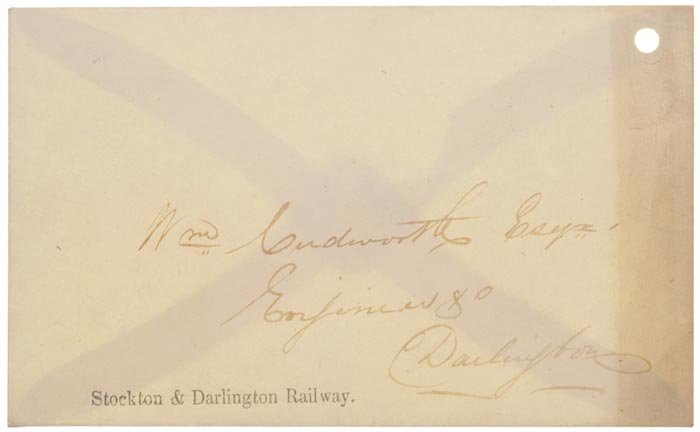 Wm Cudworth Esqr.
Engineer &c
Darlington
Stockton & Darlington Railway.